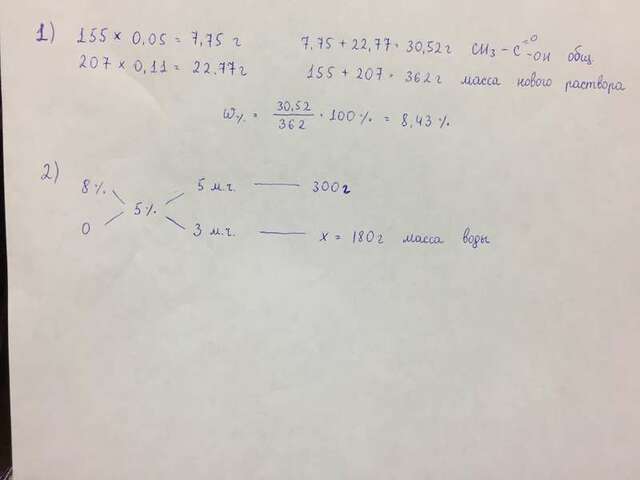 1) 155 × 0,05 = 7,75 г 7,75 + 22,77 = 30,52г CH3 - C =O -OH общ.
207 × 0,11 = 22,77г 155 + 207 = 362г масса нового раствора
W% = 30,52 / 362 · 100% = 8,43 %
2) 8% 5 м.ч. 300г
5%
0 3 м.ч. x = 180г масса воды